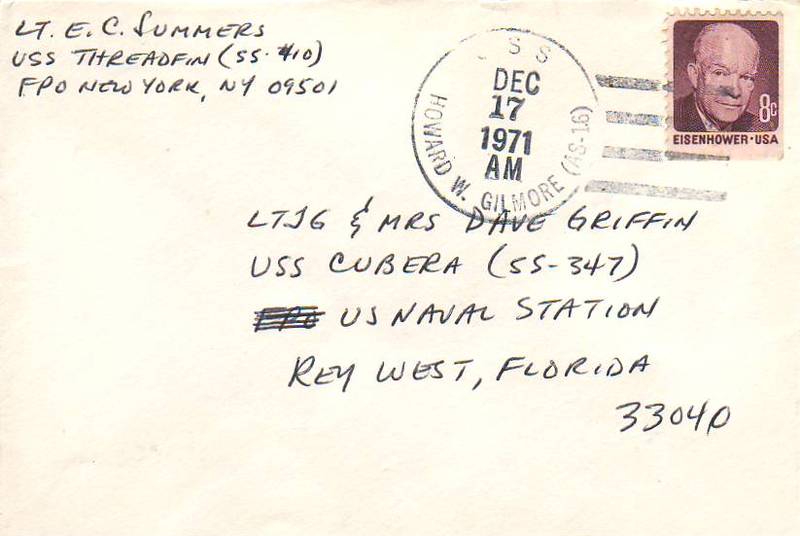 LT. E. C. SUMMERS
USS THREADFIN (SS-410)
FPO NEW YORK, NY 09501
USS
DEC
17
1971
AM
HOWARD W. GILMORE (AS-16)
8c
EISENHOWER·USA
LTJG & MRS DAVE GRIFFIN
USS CUBERA (SS-347)
FPO US NAVAL STATION
KEY WEST, FLORIDA
33040